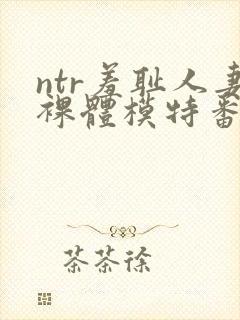 ntr羞耻人妻
裸體模特番
茶茶徐